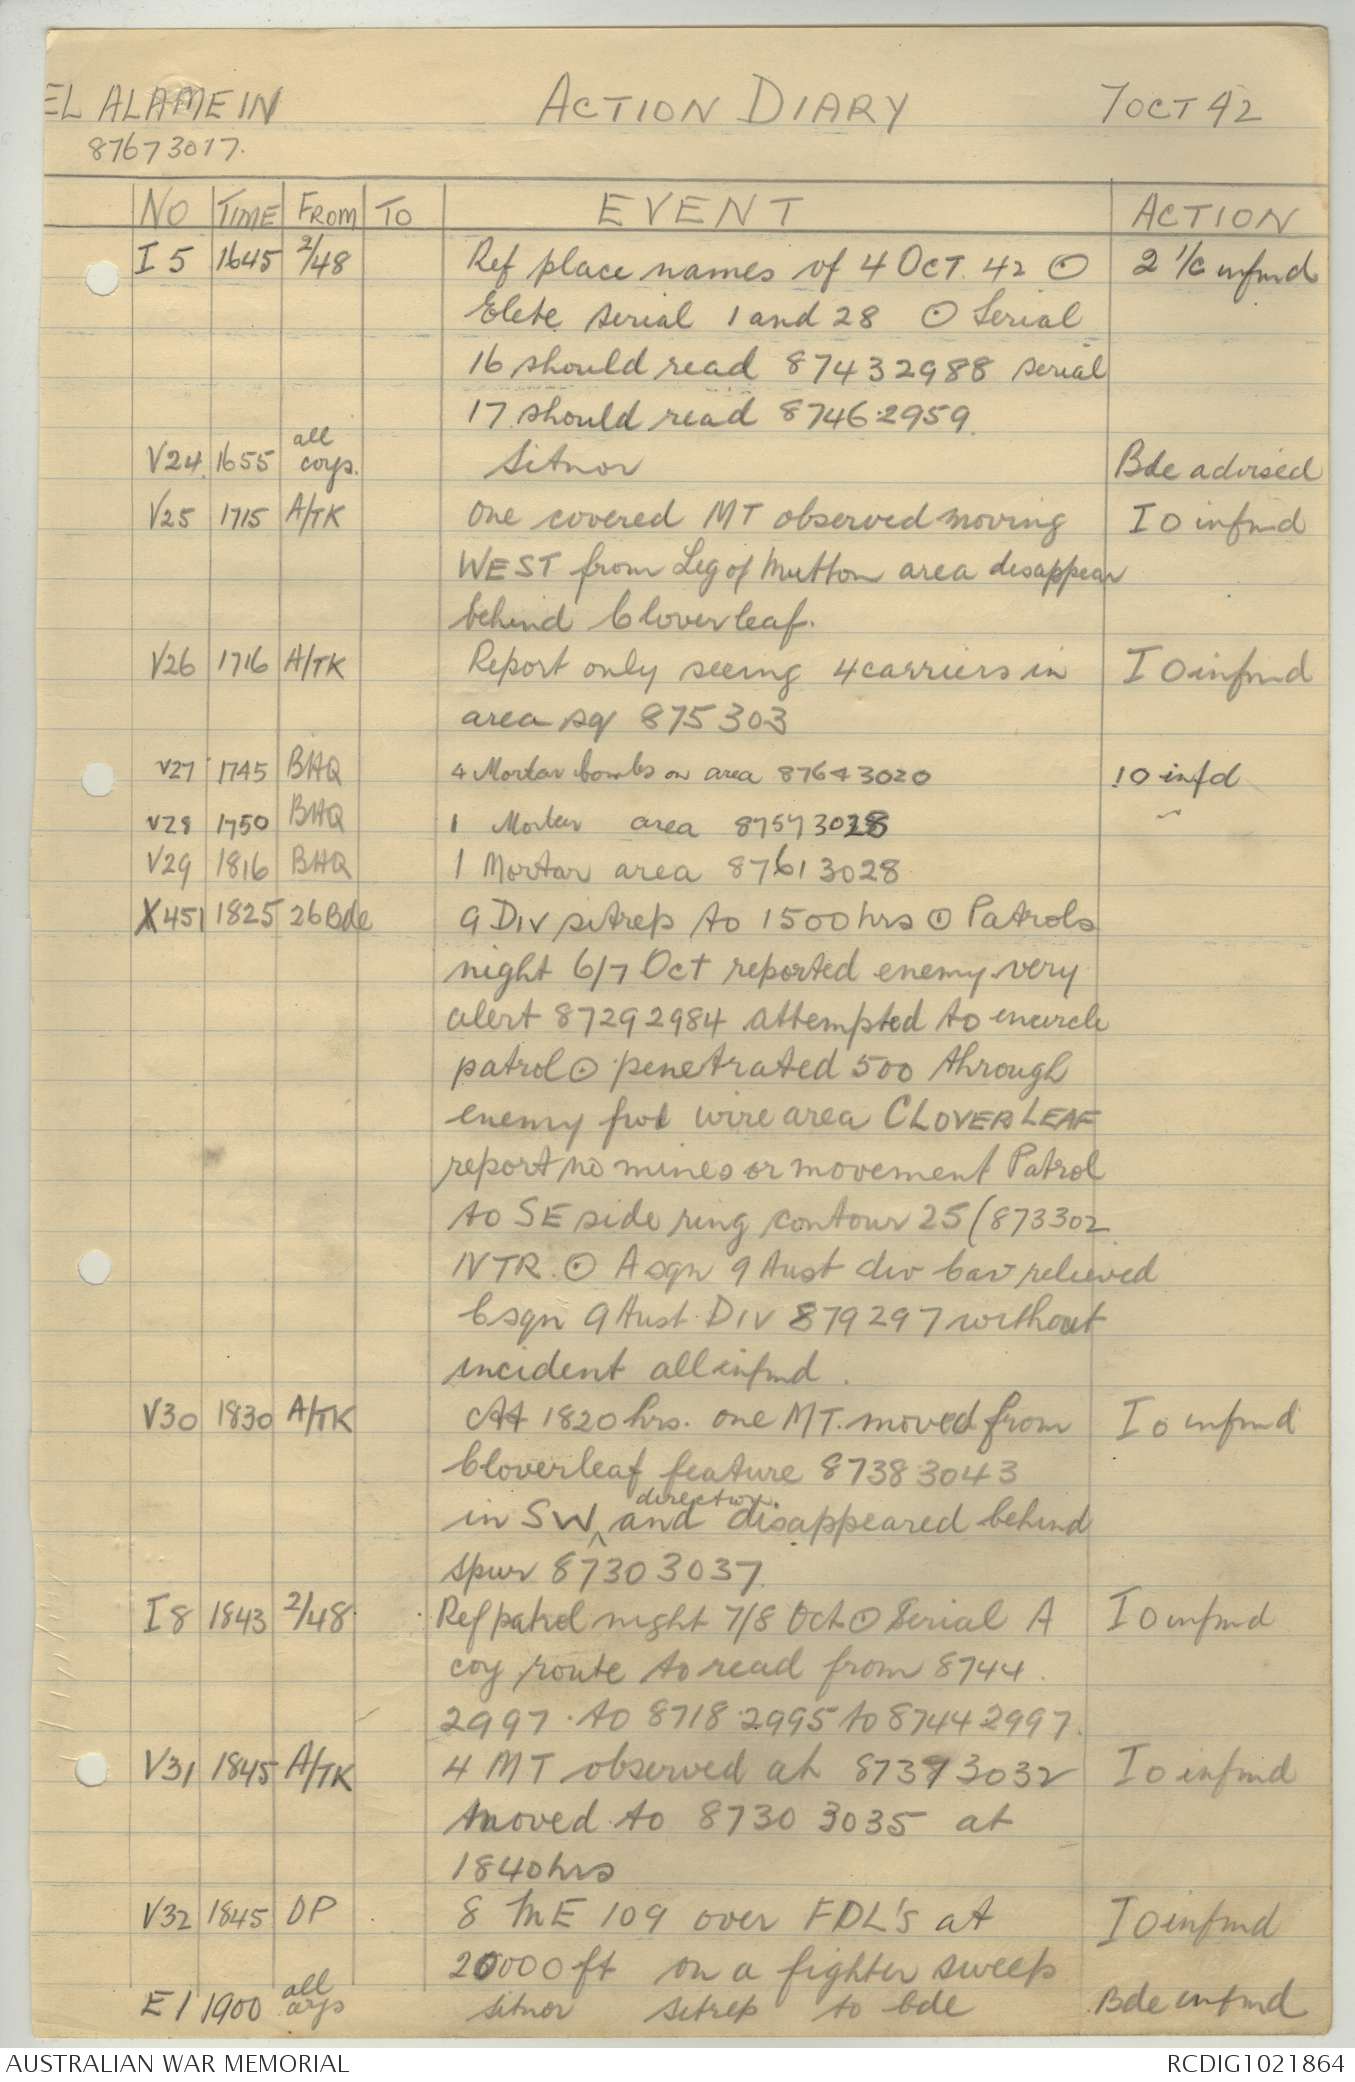 EL ALAMEIN ACTION DIARY 7 OCT 42
87673017.
NO TIME FROM TO EVENT ACTION
I 5 1645 2/48 Ref place names of 4 OCT. 42 ⊙ 2 i/c infmd
Elete serial 1 and 28 ⊙ Serial
16 should read 87432988 serial
17 should read 87462959.
V24 1655 all coys. Sitnor Bde advised
V25 1715 A/TK One covered MT observed moving I O infmd
WEST from Leg of Mutton area disappear
behind Cloverleaf.
V26 1716 A/TK Report only seeing 4 carriers in I O infmd
area sq 875303
V27 1745 BHQ 4 Mortar bombs on area 87643020 IO infd
V28 1750 BHQ 1 Mortar area 87573028 "
V29 1816 BHQ 1 Mortar area 87613028
X451 1825 26 Bde 9 DIV sitrep to 1500 hrs ⊙ Patrols
night 6/7 Oct reported enemy very
alert 87292984 attempted to encircle
patrol ⊙ penetrated 500 through
enemy fwd wire area CLOVER LEAF
report no mines or movement Patrol
to SE side ring contour 25 (873302
NTR. ⊙ A sqn 9 Aust div cav relieved
C sqn 9 Aust Div 879297 without
incident all infmd.
V30 1830 A/TK At 1820 hrs. one MT. moved from I O infmd
Cloverleaf feature 87383043
in SW ^ direction. and disappeared behind
spur 87303037.
I 8 1843 2/48. Ref patrol night 7/8 Oct ⊙ Serial A I O infmd
coy route to read from 8744
2997. to 8718 2995 to 8744 2997.
V31 1845 A/TK 4 MT observed at 87393032 I O infmd
moved to 8730 3035 at
1840 hrs
V32 1845 OP 8 ME 109 over FDL's at I O infmd
20000 ft on a fighter sweep
E 1 1900 all coys sitnor sitrep to bde Bde infmd
AUSTRALIAN WAR MEMORIAL RCDIG1021864